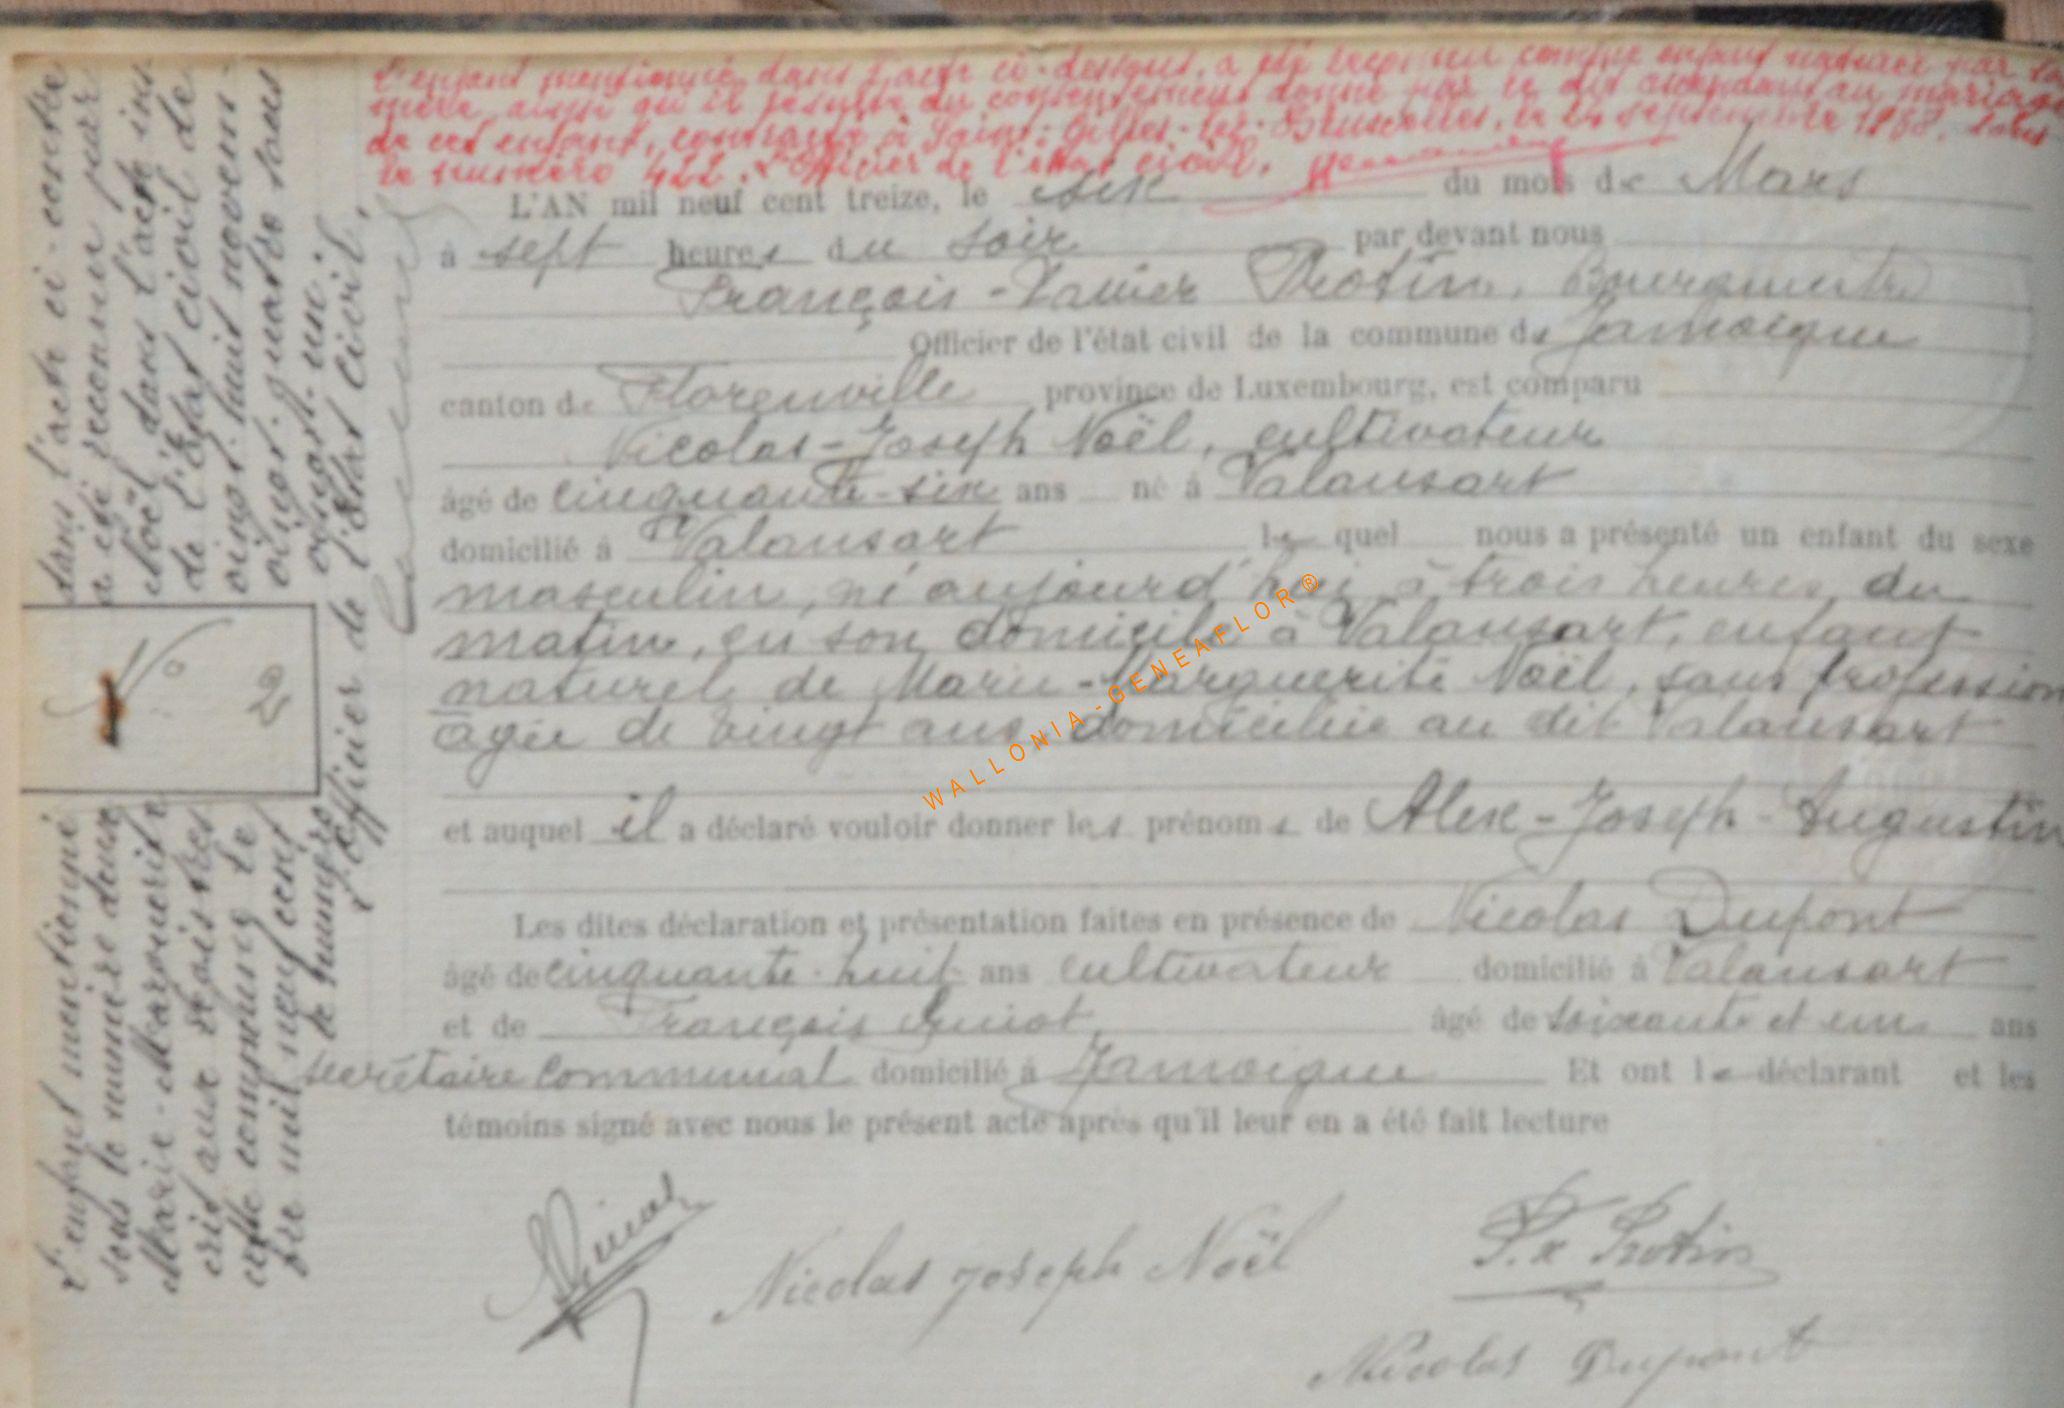 L'enfant mentionné dans l'acte ci-dessous, a été reconnu comme enfant naturel par sa
mère ainsi qu'il résulte du consentement donné par le dit ascendant au mariage
de cet enfant, contracté à Saint-Gilles-lez-Bruxelles, le 24 septembre 1938, sous
le numéro 422. L'Officier de l'état civil,
L'AN mil neuf cent treize, le six du mois de Mars
à sept heures du soir par devant nous
François-Xavier Protin, Bourgmestre
Officier de l'état civil de la commune de Jamoigne
canton de Florenville province de Luxembourg, est comparu
Nicolas-Joseph Noël, cultivateur
âgé de cinquante-six ans né à Valansart
domicilié à Valansart lequel nous a présenté un enfant du sexe
masculin, né aujourd'hui à trois heures du
matin, en son domicile à Valansart, enfant
naturel de Marie-Marguerite Noël, sans profession
âgée de vingt ans domiciliée au dit Valansart
et auquel il a déclaré vouloir donner les prénoms de Alex-Joseph-Augustin
Les dites déclaration et présentation faites en présence de Nicolas Dupont
âgé de cinquante-huit ans cultivateur domicilié à Valansart
et de François Guiot, âgé de soixante et un ans
secrétaire communal domicilié à Jamoigne Et ont le déclarant et les
témoins signé avec nous le présent acte après qu'il leur en a été fait lecture
Nicolas Joseph Noël
F. X Protin
Nicolas Dupont
N° 2
L'enfant mentionné dans l'acte ci-contre
sous le numéro deux a été reconnu par
Marie-Marguerite Noël dans l'acte ins
crit aux registres de l'état civil de
cette commune le vingt-huit novem-
bre mil neuf cent vingt-quatre sous
le numéro vingt-un.
L'officier de l'état civil,
WALLONIA-GENEAFLOR®